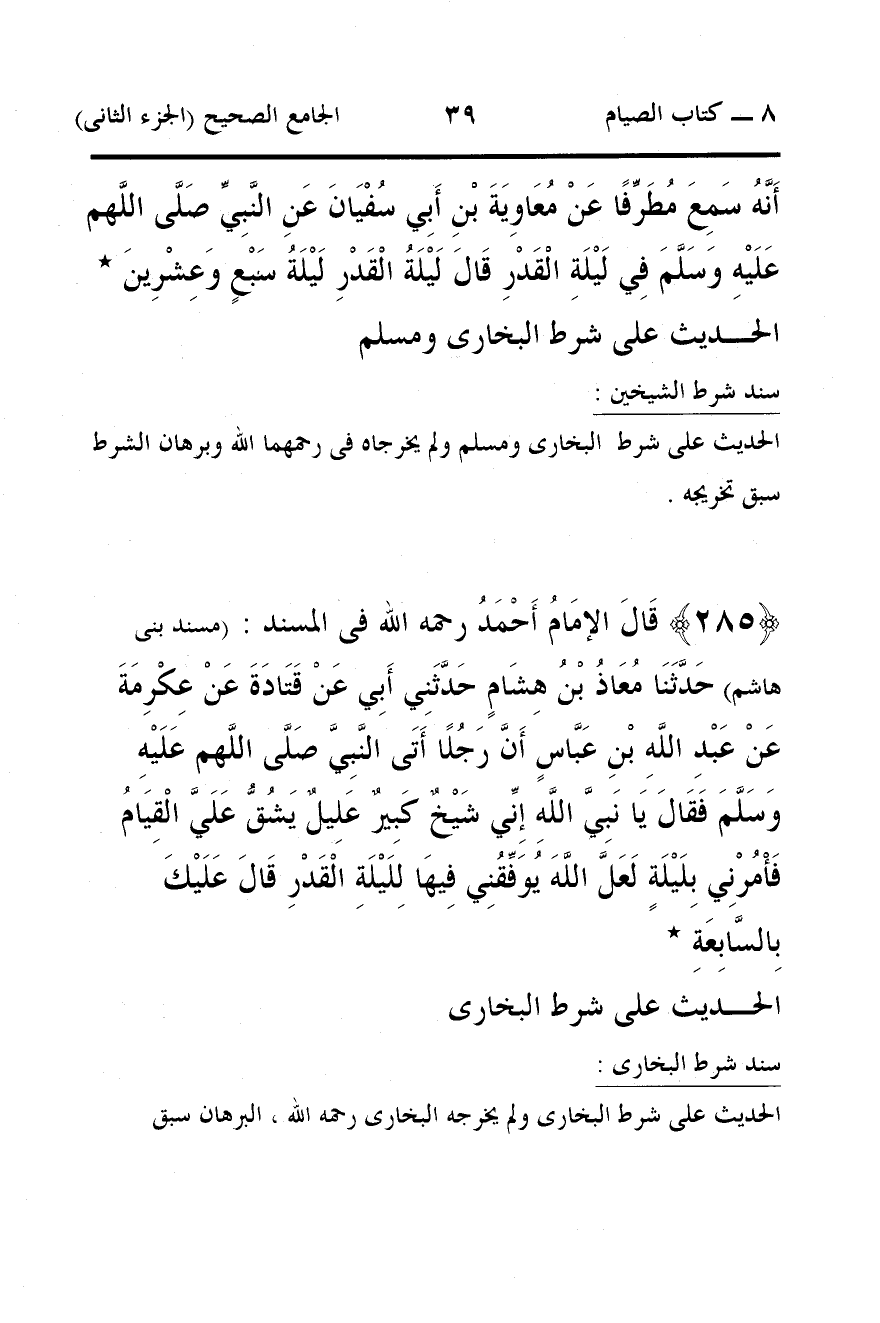 ٨ ــ كتاب الصيام ٣٩ الجامع الصحيح (الجزء الثانى)
أَنَّهُ سَمِعَ مُطَرِّفًا عَنْ مُعَاوِيَةَ بْنِ أَبِي سُفْيَانَ عَنِ النَّبِيِّ صَلَّى اللَّهم
عَلَيْهِ وَسَلَّمَ فِي لَيْلَةِ الْقَدْرِ قَالَ لَيْلَةُ الْقَدْرِ لَيْلَةُ سَبْعٍ وَعِشْرِينَ *
الحـــديث على شرط البخارى ومسلم
سند شرط الشيخين :
الحديث على شرط البخارى ومسلم ولم يخرجاه فى رحمهما الله وبرهان الشرط
سبق تخريجه .
﴿٢٨٥﴾ قَالَ الإمَامُ أَحْمَدُ رحمه الله فى المسند : (مسند بنى
هاشم) حَدَّثَنَا مُعَاذُ بْنُ هِشَامٍ حَدَّثَنِي أَبِي عَنْ قَتَادَةَ عَنْ عِكْرِمَةَ
عَنْ عَبْدِ اللَّهِ بْنِ عَبَّاسٍ أَنَّ رَجُلًا أَتَى النَّبِيَّ صَلَّى اللَّهم عَلَيْهِ
وَسَلَّمَ فَقَالَ يَا نَبِيَّ اللَّهِ إِنِّي شَيْخٌ كَبِيرٌ عَلِيلٌ يَشُقُّ عَلَيَّ الْقِيَامُ
فَأْمُرْنِي بِلَيْلَةٍ لَعَلَّ اللَّهَ يُوَفِّقُنِي فِيهَا لِلَيْلَةِ الْقَدْرِ قَالَ عَلَيْكَ
بِالسَّابِعَةِ *
الحـــديث على شرط البخارى
سند شرط البخارى :
الحديث على شرط البخارى ولم يخرجه البخارى رحمه الله ، البرهان سبق